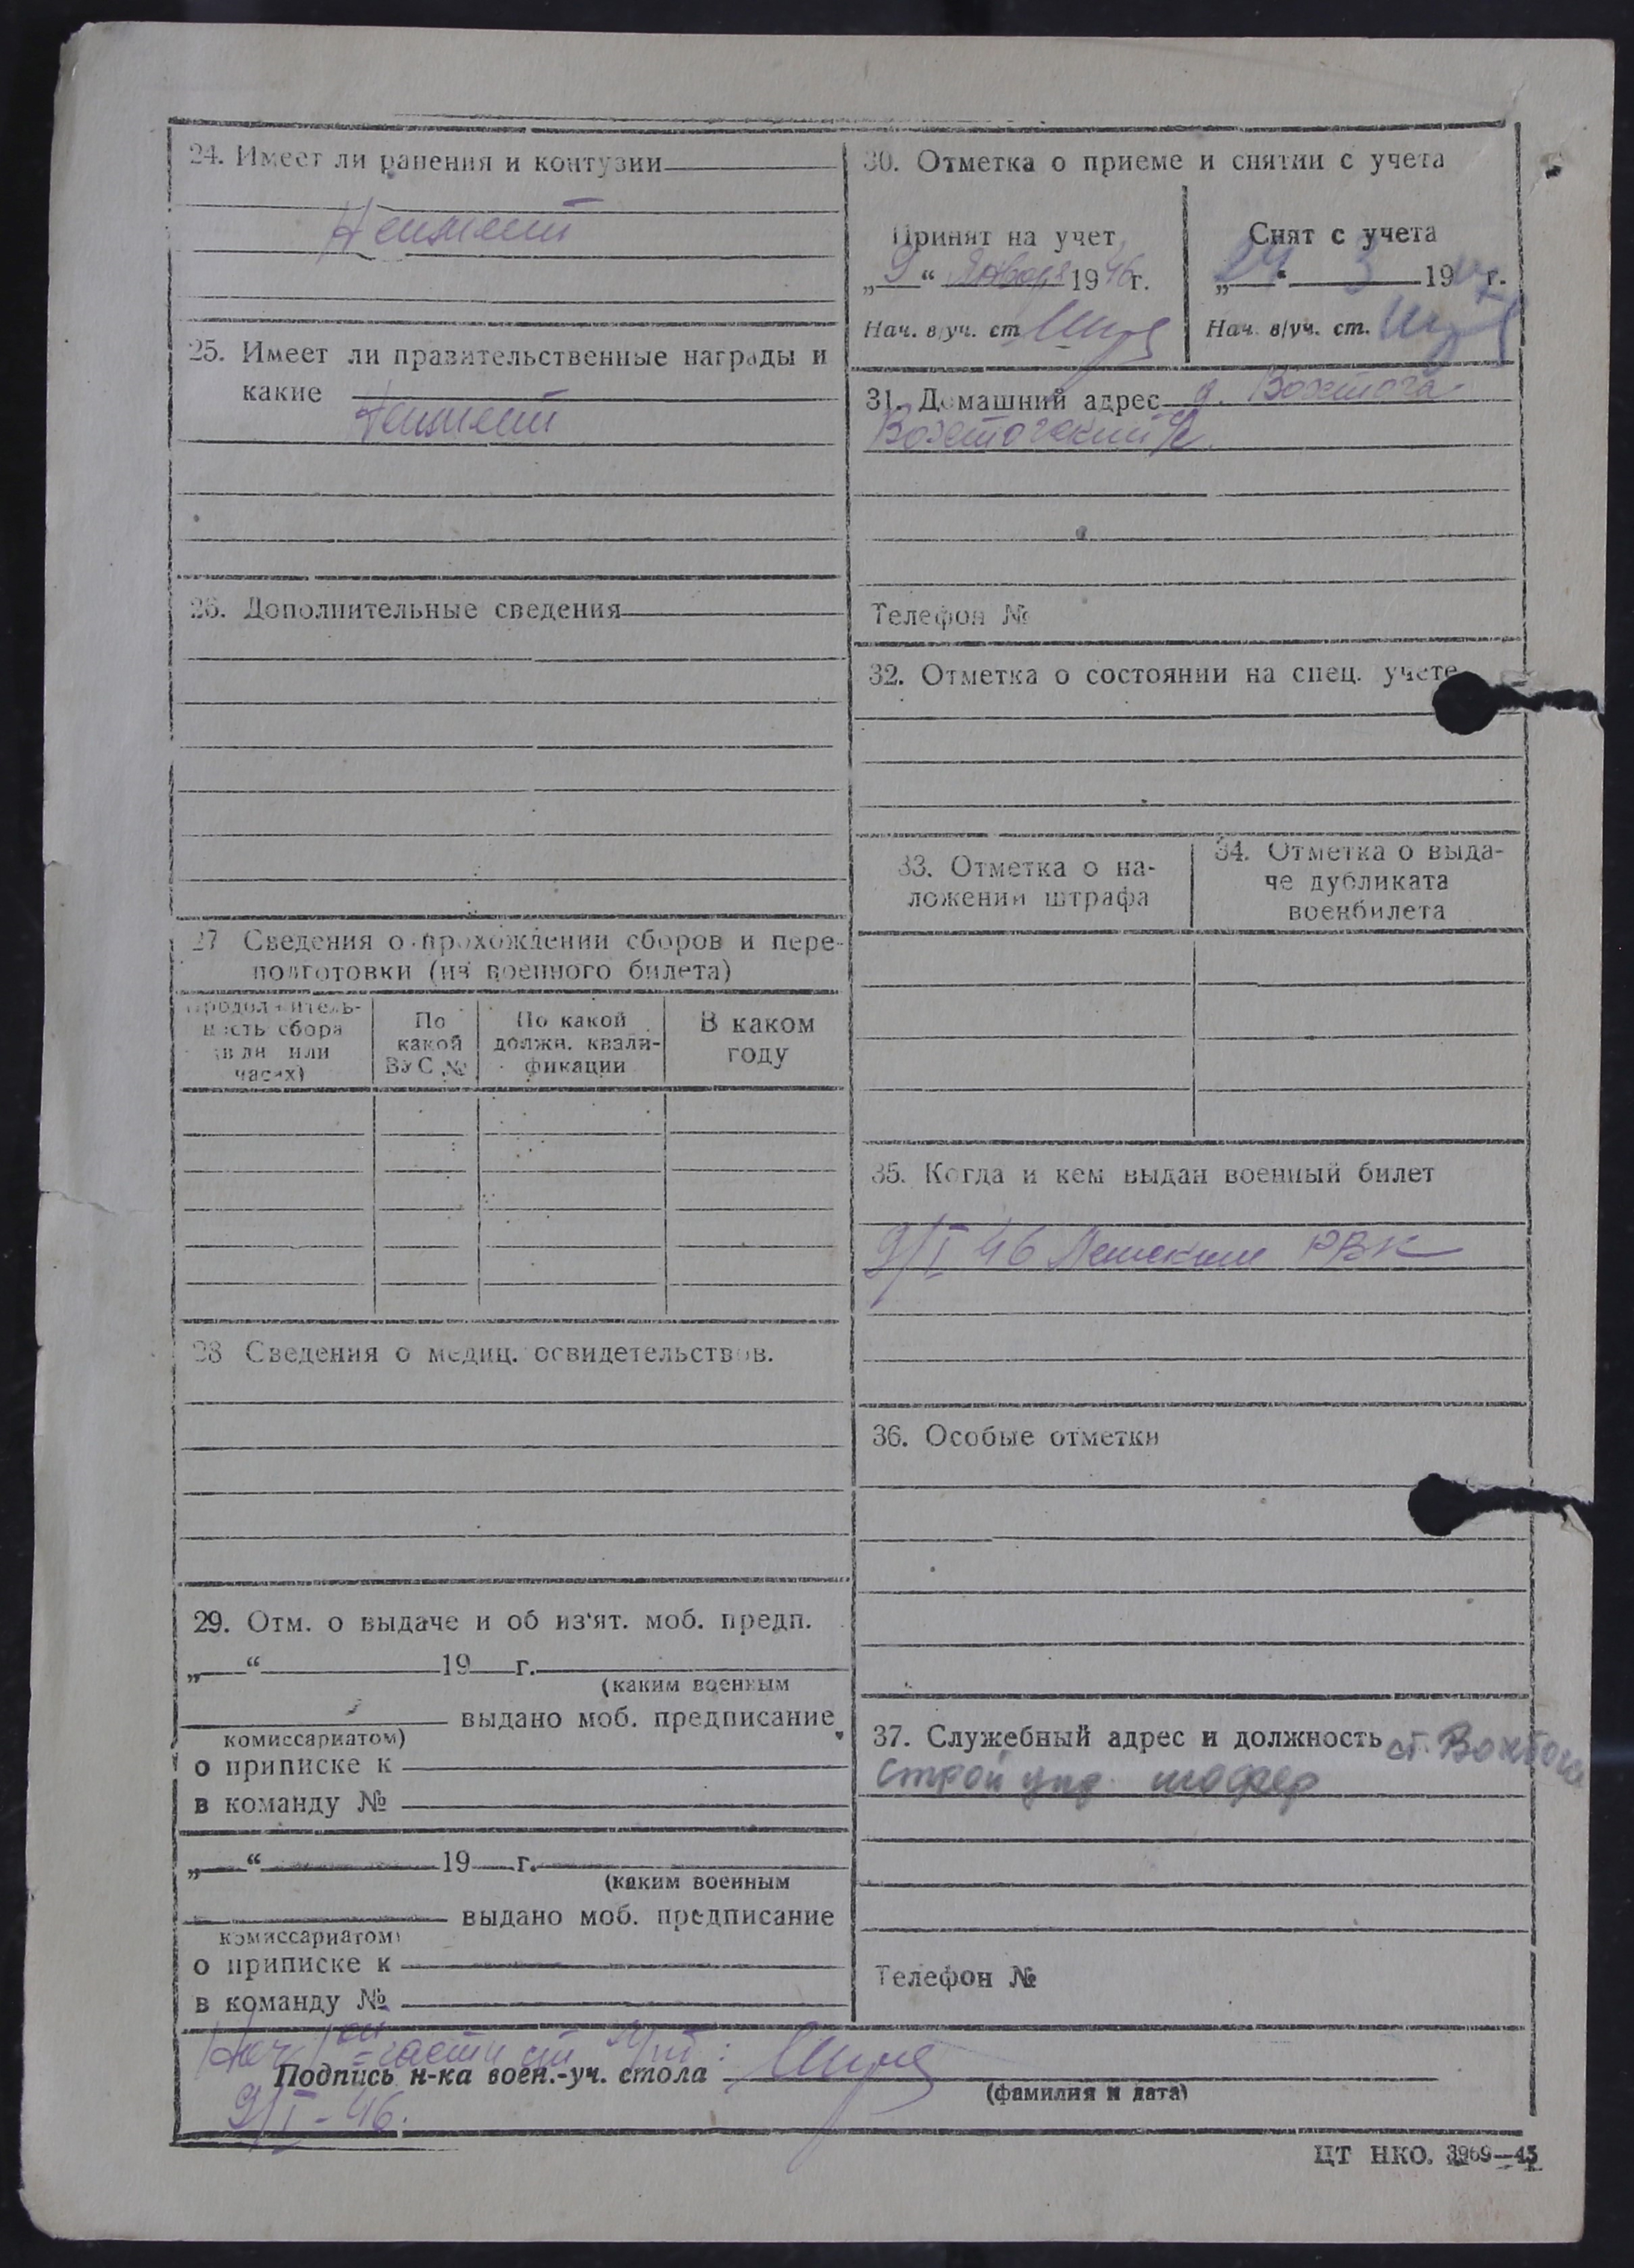 24. Имеет ли ранения и контузии
Неимеет
25. Имеет ли правительственные награды и
какие
Неимеет
26. Дополнительные сведения
27 Сведения о прохождении сборов и пере-
подготовки (из военного билета)
Продолжитель-
ность сбора
(в дн или
часах)
По
какой
ВУС №
По какой
должн. квали-
фикации
В каком
году
28 Сведения о медиц. освидетельствов.
29. Отм. о выдаче и об из'ят. моб. предп.
„ “ 19 г.
(каким военным
выдано моб. предписание
комиссариатом)
о приписке к
в команду №
„ “ 19 г.
(каким военным
выдано моб. предписание
комиссариатом)
о приписке к
в команду №
30. Отметка о приеме и снятии с учета
Принят на учет
„9“ января 1946г.
Нач. в/уч. ст
Снят с учета
„24“ 3 19 г.
Нач. в/уч. ст.
31. Домашний адрес д. Вохтога
Вохтогский с/с
Телефон №
32. Отметка о состоянии на спец. учете
33. Отметка о на-
ложении штрафа
34. Отметка о выда-
че дубликата
военбилета
35. Когда и кем выдан военный билет
9/I 46 РВК
36. Особые отметки
37. Служебный адрес и должность ст. Вохтога
Строй упр. шофер
Телефон №
Нач части
Подпись н-ка воен.-уч. стола
(фамилия и дата)
9/I-46.
ЦТ НКО. 3969—45